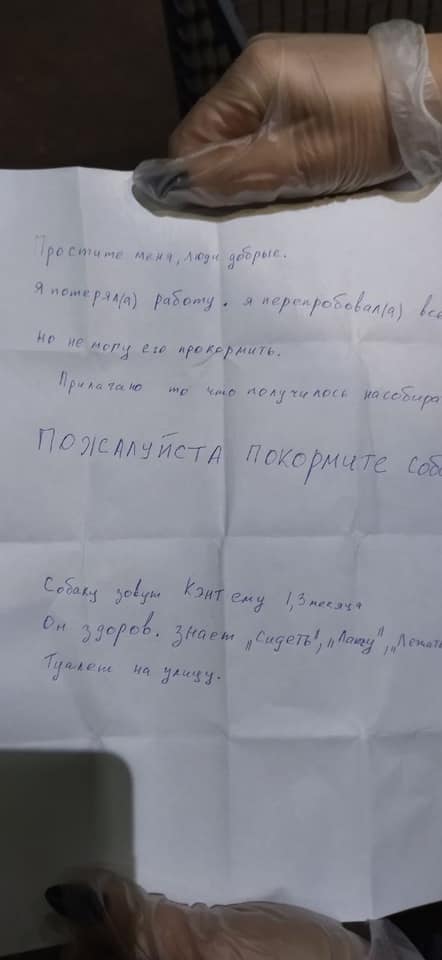 Простите меня, люди добрые.
Я потерял(а) работу. я перепробовал(а) все
но не могу его прокормить.
Прилагаю то что получилось насобира
ПОЖАЛУЙСТА ПОКОРМИТЕ СОБ
Собаку зовут Кэнт ему 1,3 месяца
Он здоров. Знает „Сидеть", „Лапу", „Лежать
Туалет на улицу.